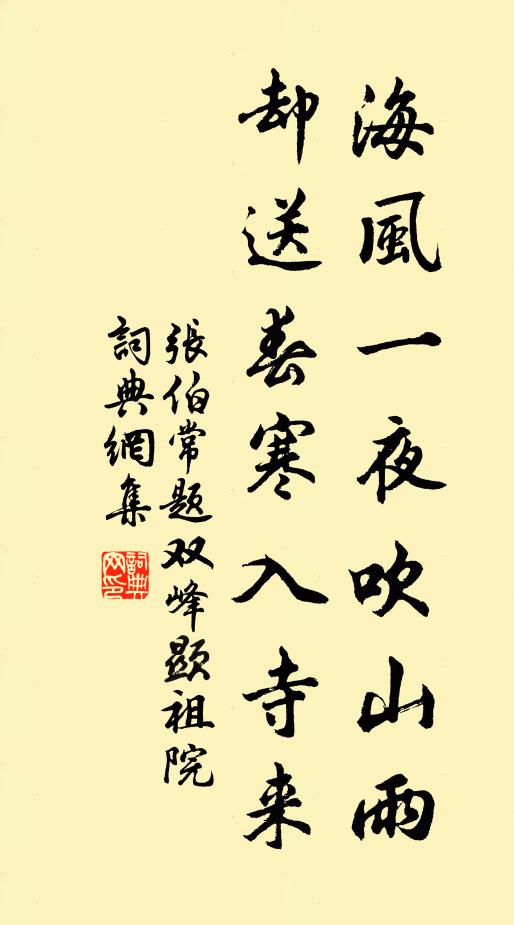 海風一夜吹山雨
却送春寒入寺来
張伯常題双峰顕祖院
詞典網集
詞典
网印